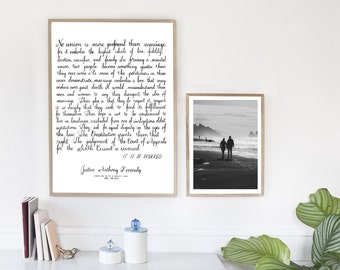 No union is more profound than marriage,
for it embodies the highest ideals of love, fidelity,
devotion, sacrifice, and family. In forming a marital
union, two people become something greater than
they once were. As some of the petitioners in these
cases demonstrate, marriage embodies a love that may
endure even past death. It would misunderstand these
men and women to say they disrespect the idea of
marriage. Their plea is that they do respect it, respect
it so deeply that they seek to find its fulfillment
for themselves. Their hope is not to be condemned to
live in loneliness, excluded from one of civilization's oldest
institutions. They ask for equal dignity in the eyes of
the law. The Constitution grants them that
right. The judgment of the Court of Appeals
for the Sixth Circuit is reversed.
IT IS SO ORDERED
Justice Anthony Kennedy